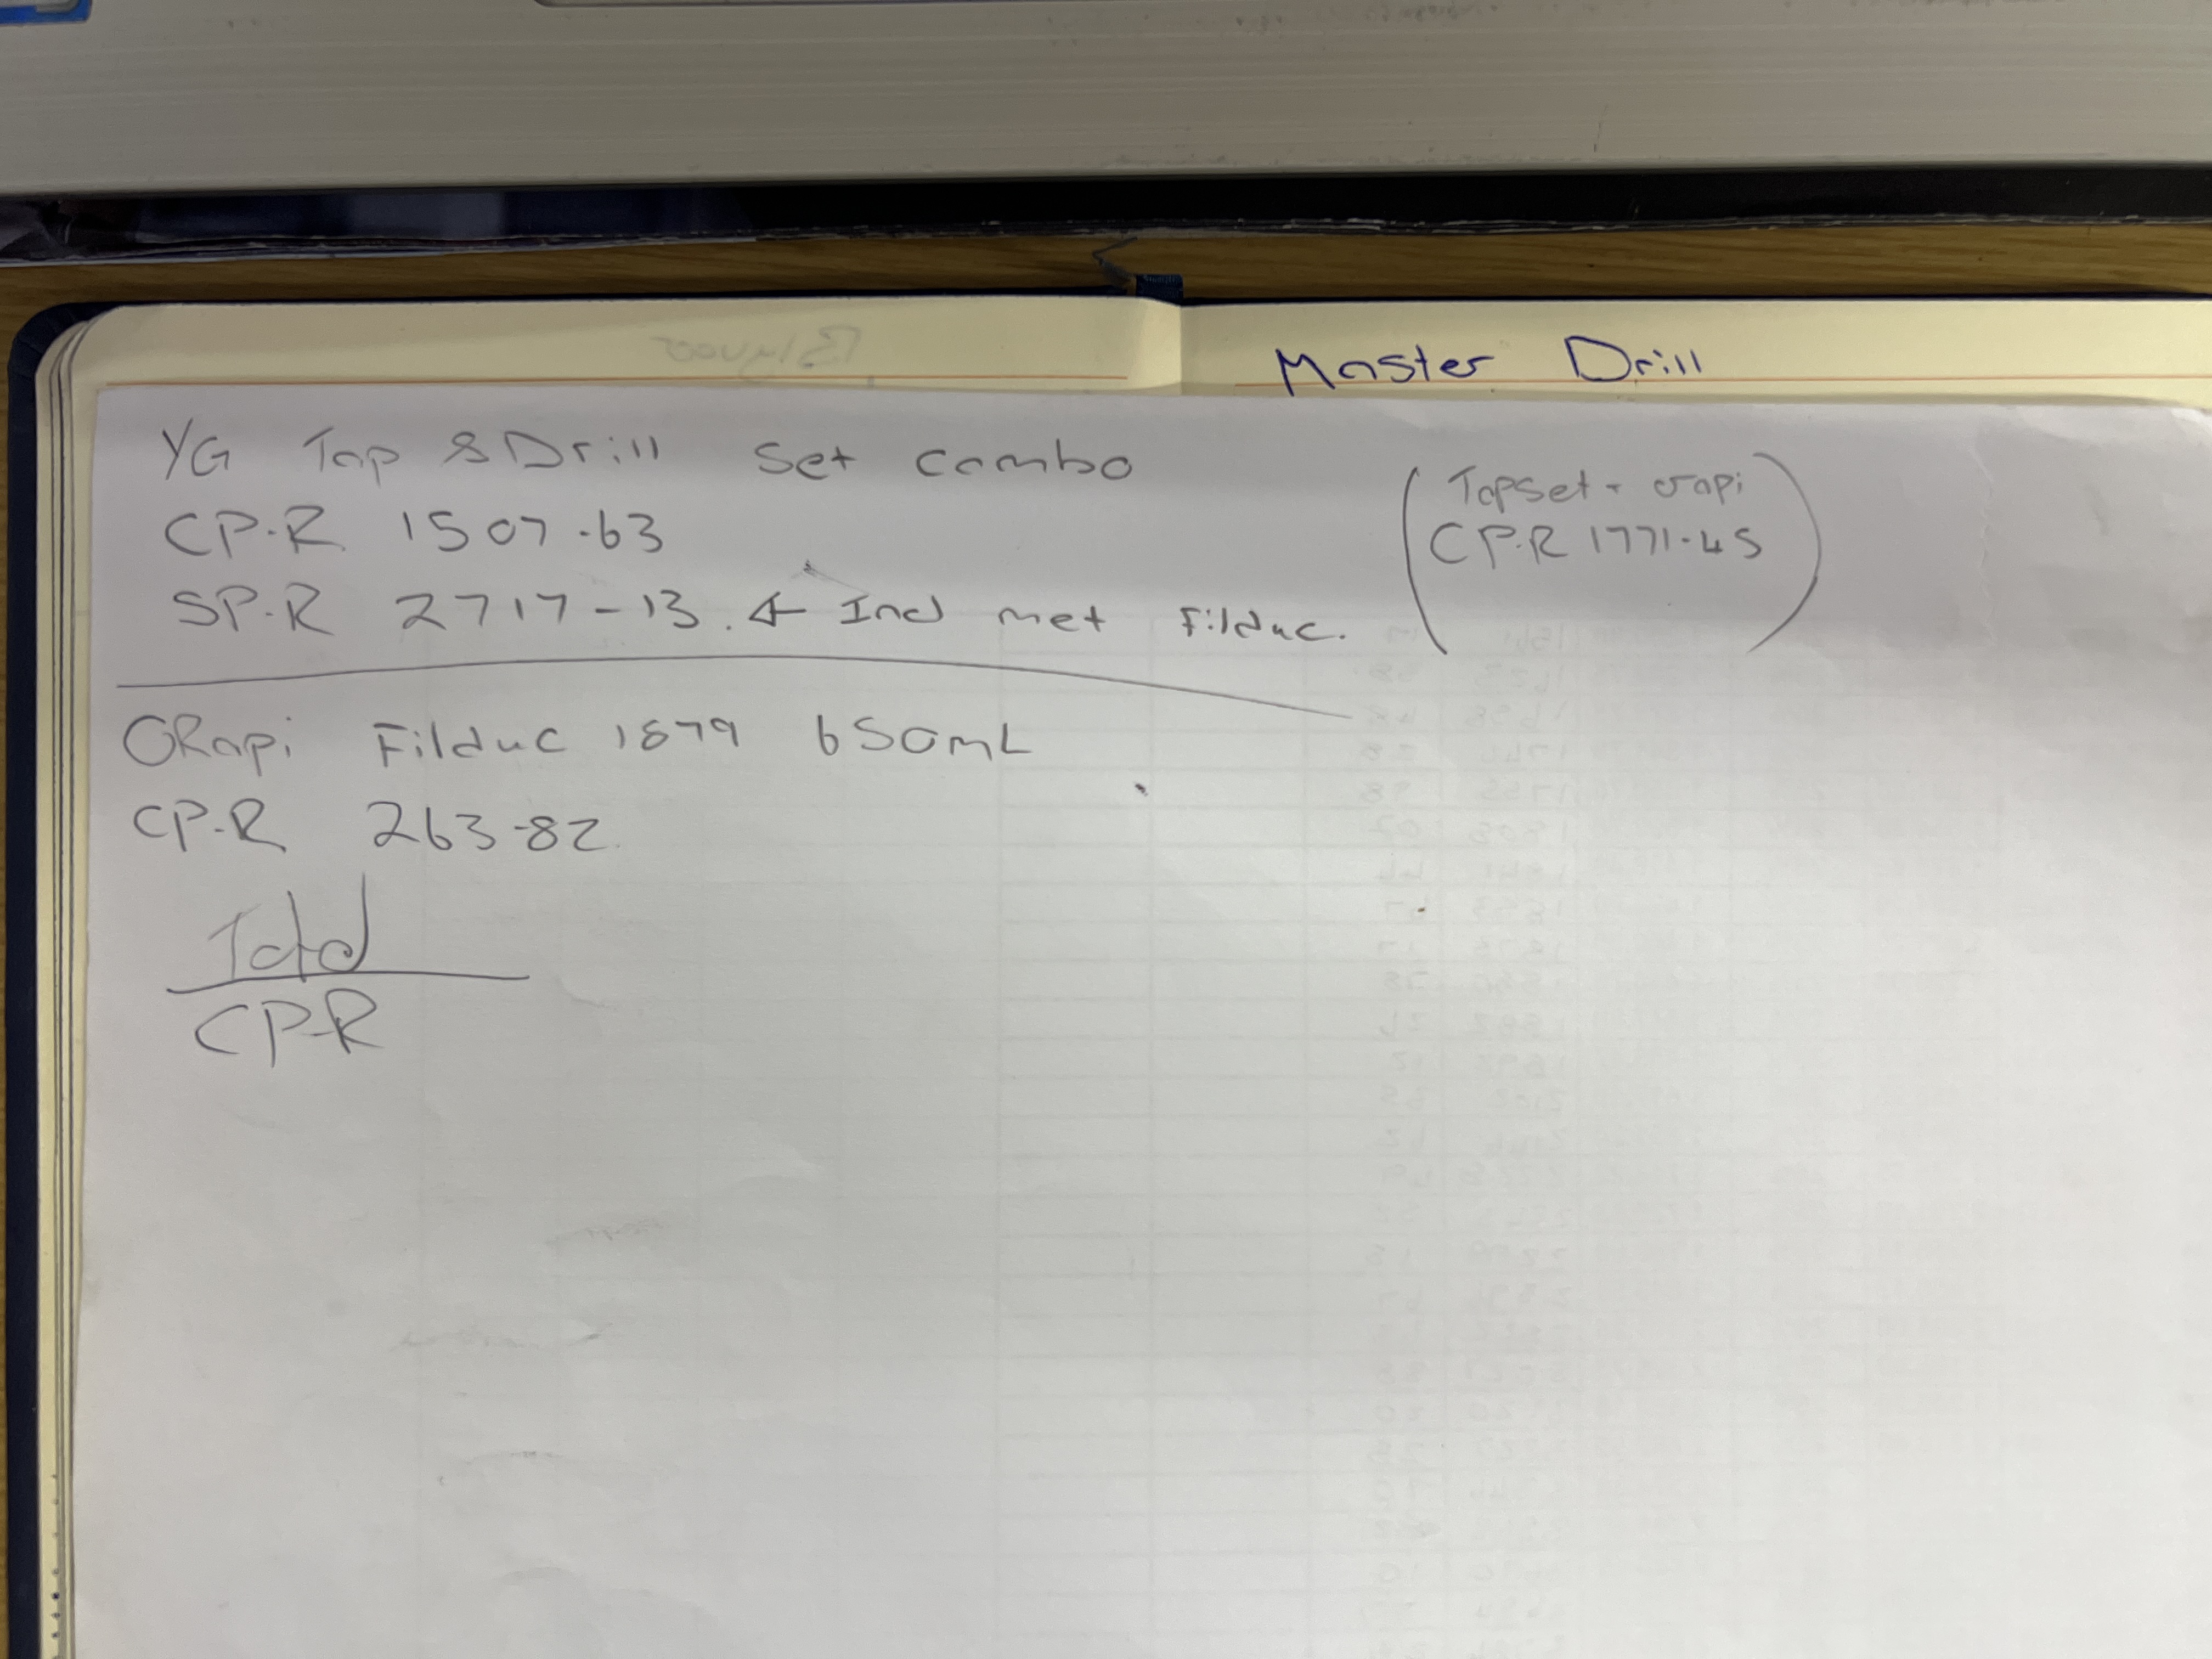 Master Drill
YG Tap & Drill Set Combo
CP.R 1507.63
SP.R 2717-13.4 Incl met Filduc.
(Tapset + orapi
CP.R 1771.45)
ORapi Filduc 1879 650mL
CP.R 263.82
Total
CP.R